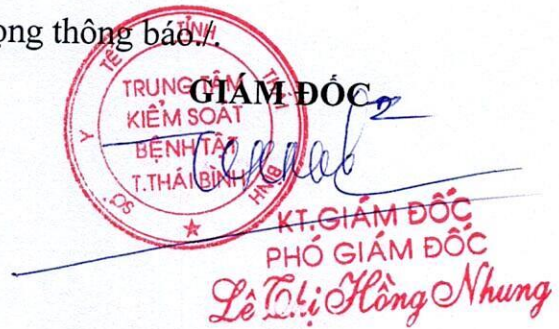 ọng thông báo./.
GIÁM ĐỐC
SỞ Y TẾ TỈNH THÁI BÌNH
TRUNG TÂM
KIỂM SOÁT
BỆNH TẬT
T.THÁI BÌNH
KT.GIÁM ĐỐC
PHÓ GIÁM ĐỐC
Lê Thị Hồng Nhung